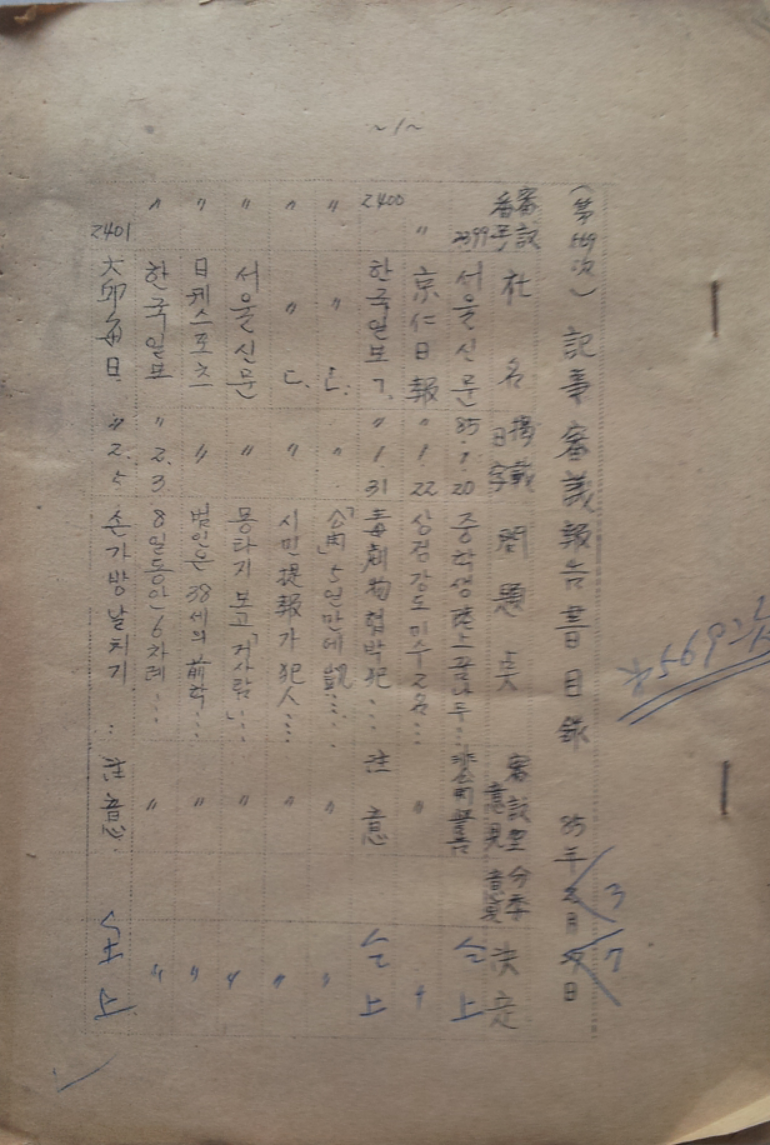 ~1~
(第569次) 記事審議報告書目錄 85年 3月 7日
審議番号 社名 揭載日字 問題点 審議室意見 分委意見 決定
2399 서울신문 85.1.20 중학생 非公開警告 仝上
〃 京仁日報 〃 1.22 상점강도미수2名… 〃 〃
2400 한국일보 ㄱ. 〃 1.31 毒劇物협박犯… 注意 仝上
〃 〃 ㄴ. 〃 「公開」5일만에 … 〃 〃
〃 〃 ㄷ. 〃 시민提報가 犯人… 〃 〃
〃 서울신문 〃 몽타지 보고 「거사람」… 〃 〃
〃 日刊스포츠 〃 범인은 38세의 前科… 〃 〃
〃 한국일보 〃 2.3 8일동안 6차례… 〃 〃
2401 大邱每日 〃 2.5 손가방날치기… 注意 仝上
569차